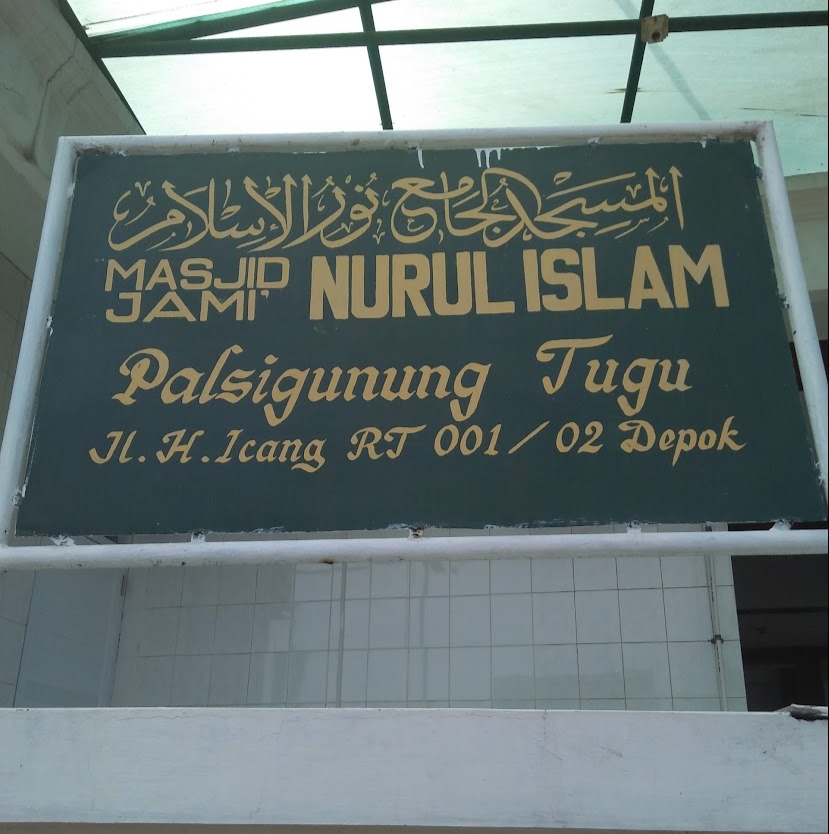 المسجد الجامع نور الإسلام
MASJID JAMI' NURUL ISLAM
Palsigunung Tugu
Jl. H. Icang RT 001 / 02 Depok